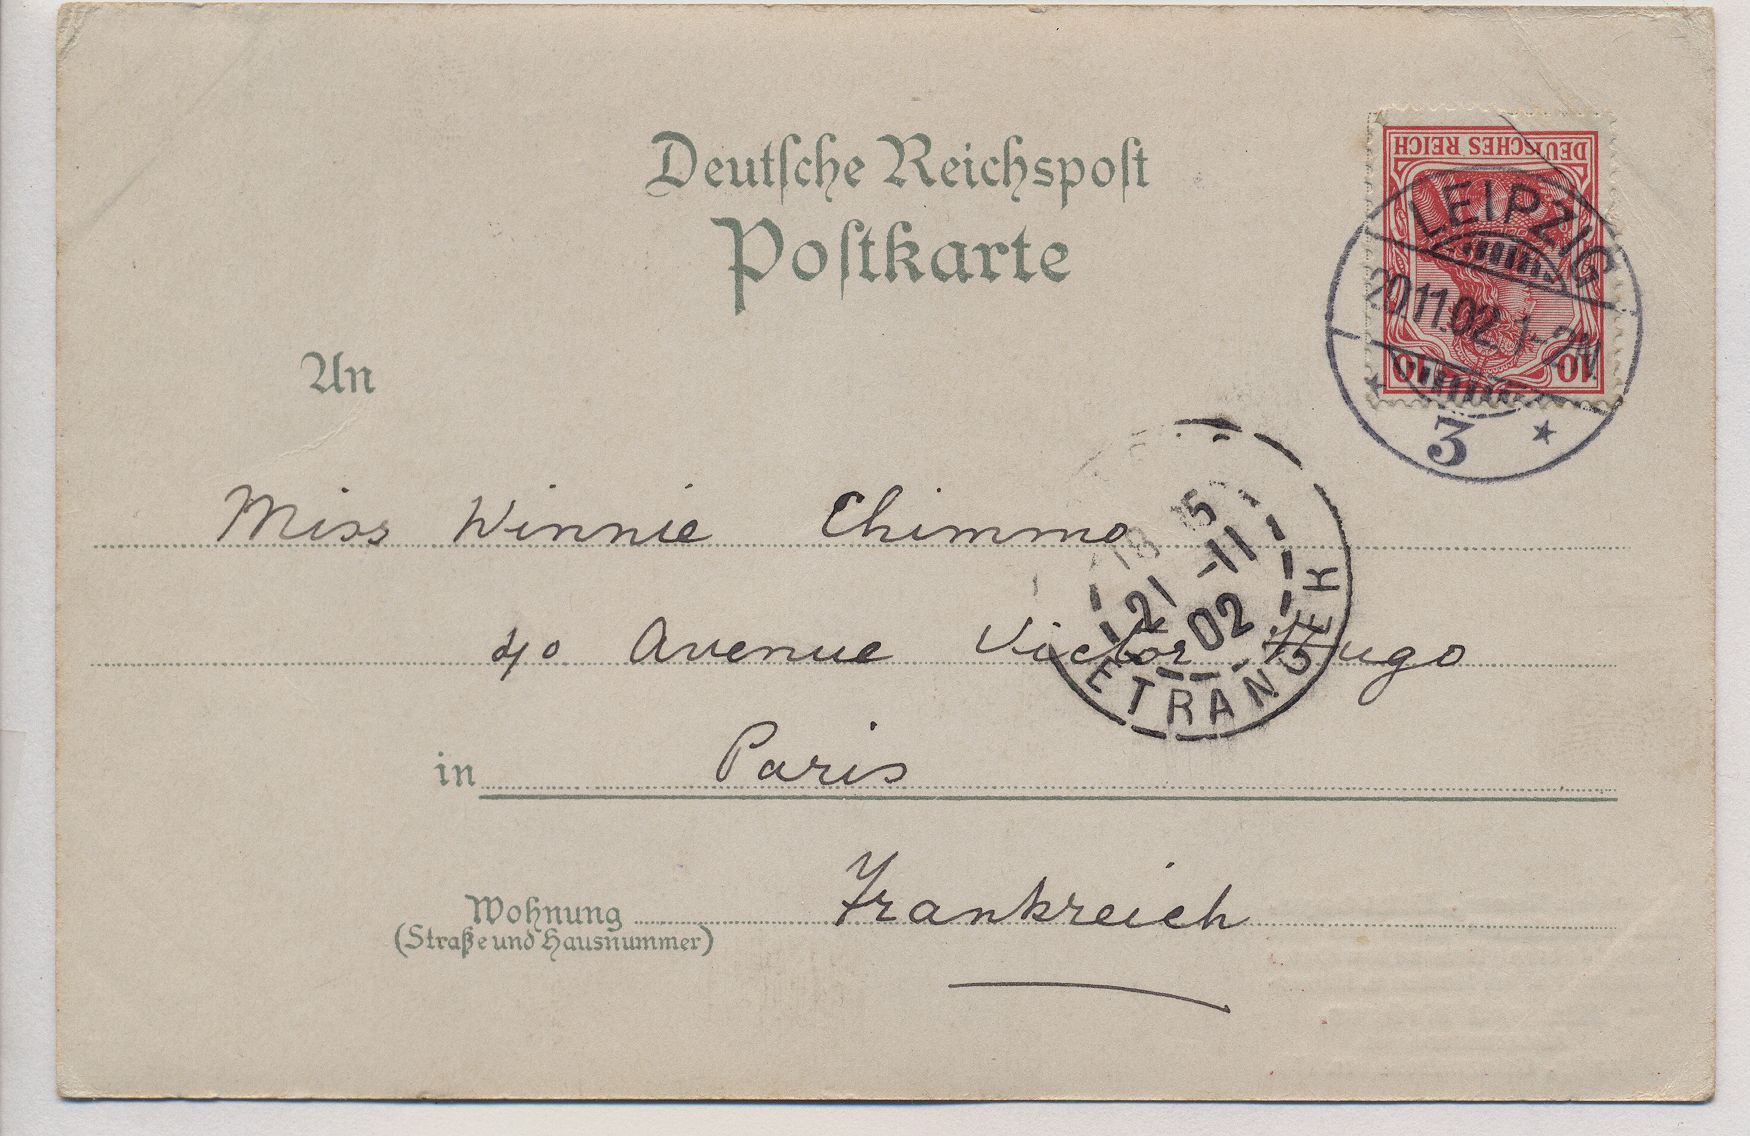 Deutsche Reichspost
Postkarte
DEUTSCHES REICH
10 10
LEIPZIG
20.11.02. 1-2N.
* 3 *
An
Miss Winnie Chimmo
18 15
21 -11
02
ETRANGER
40 Avenue Victor Hugo
in Paris
Frankreich
Wohnung
(Straße und Hausnummer)